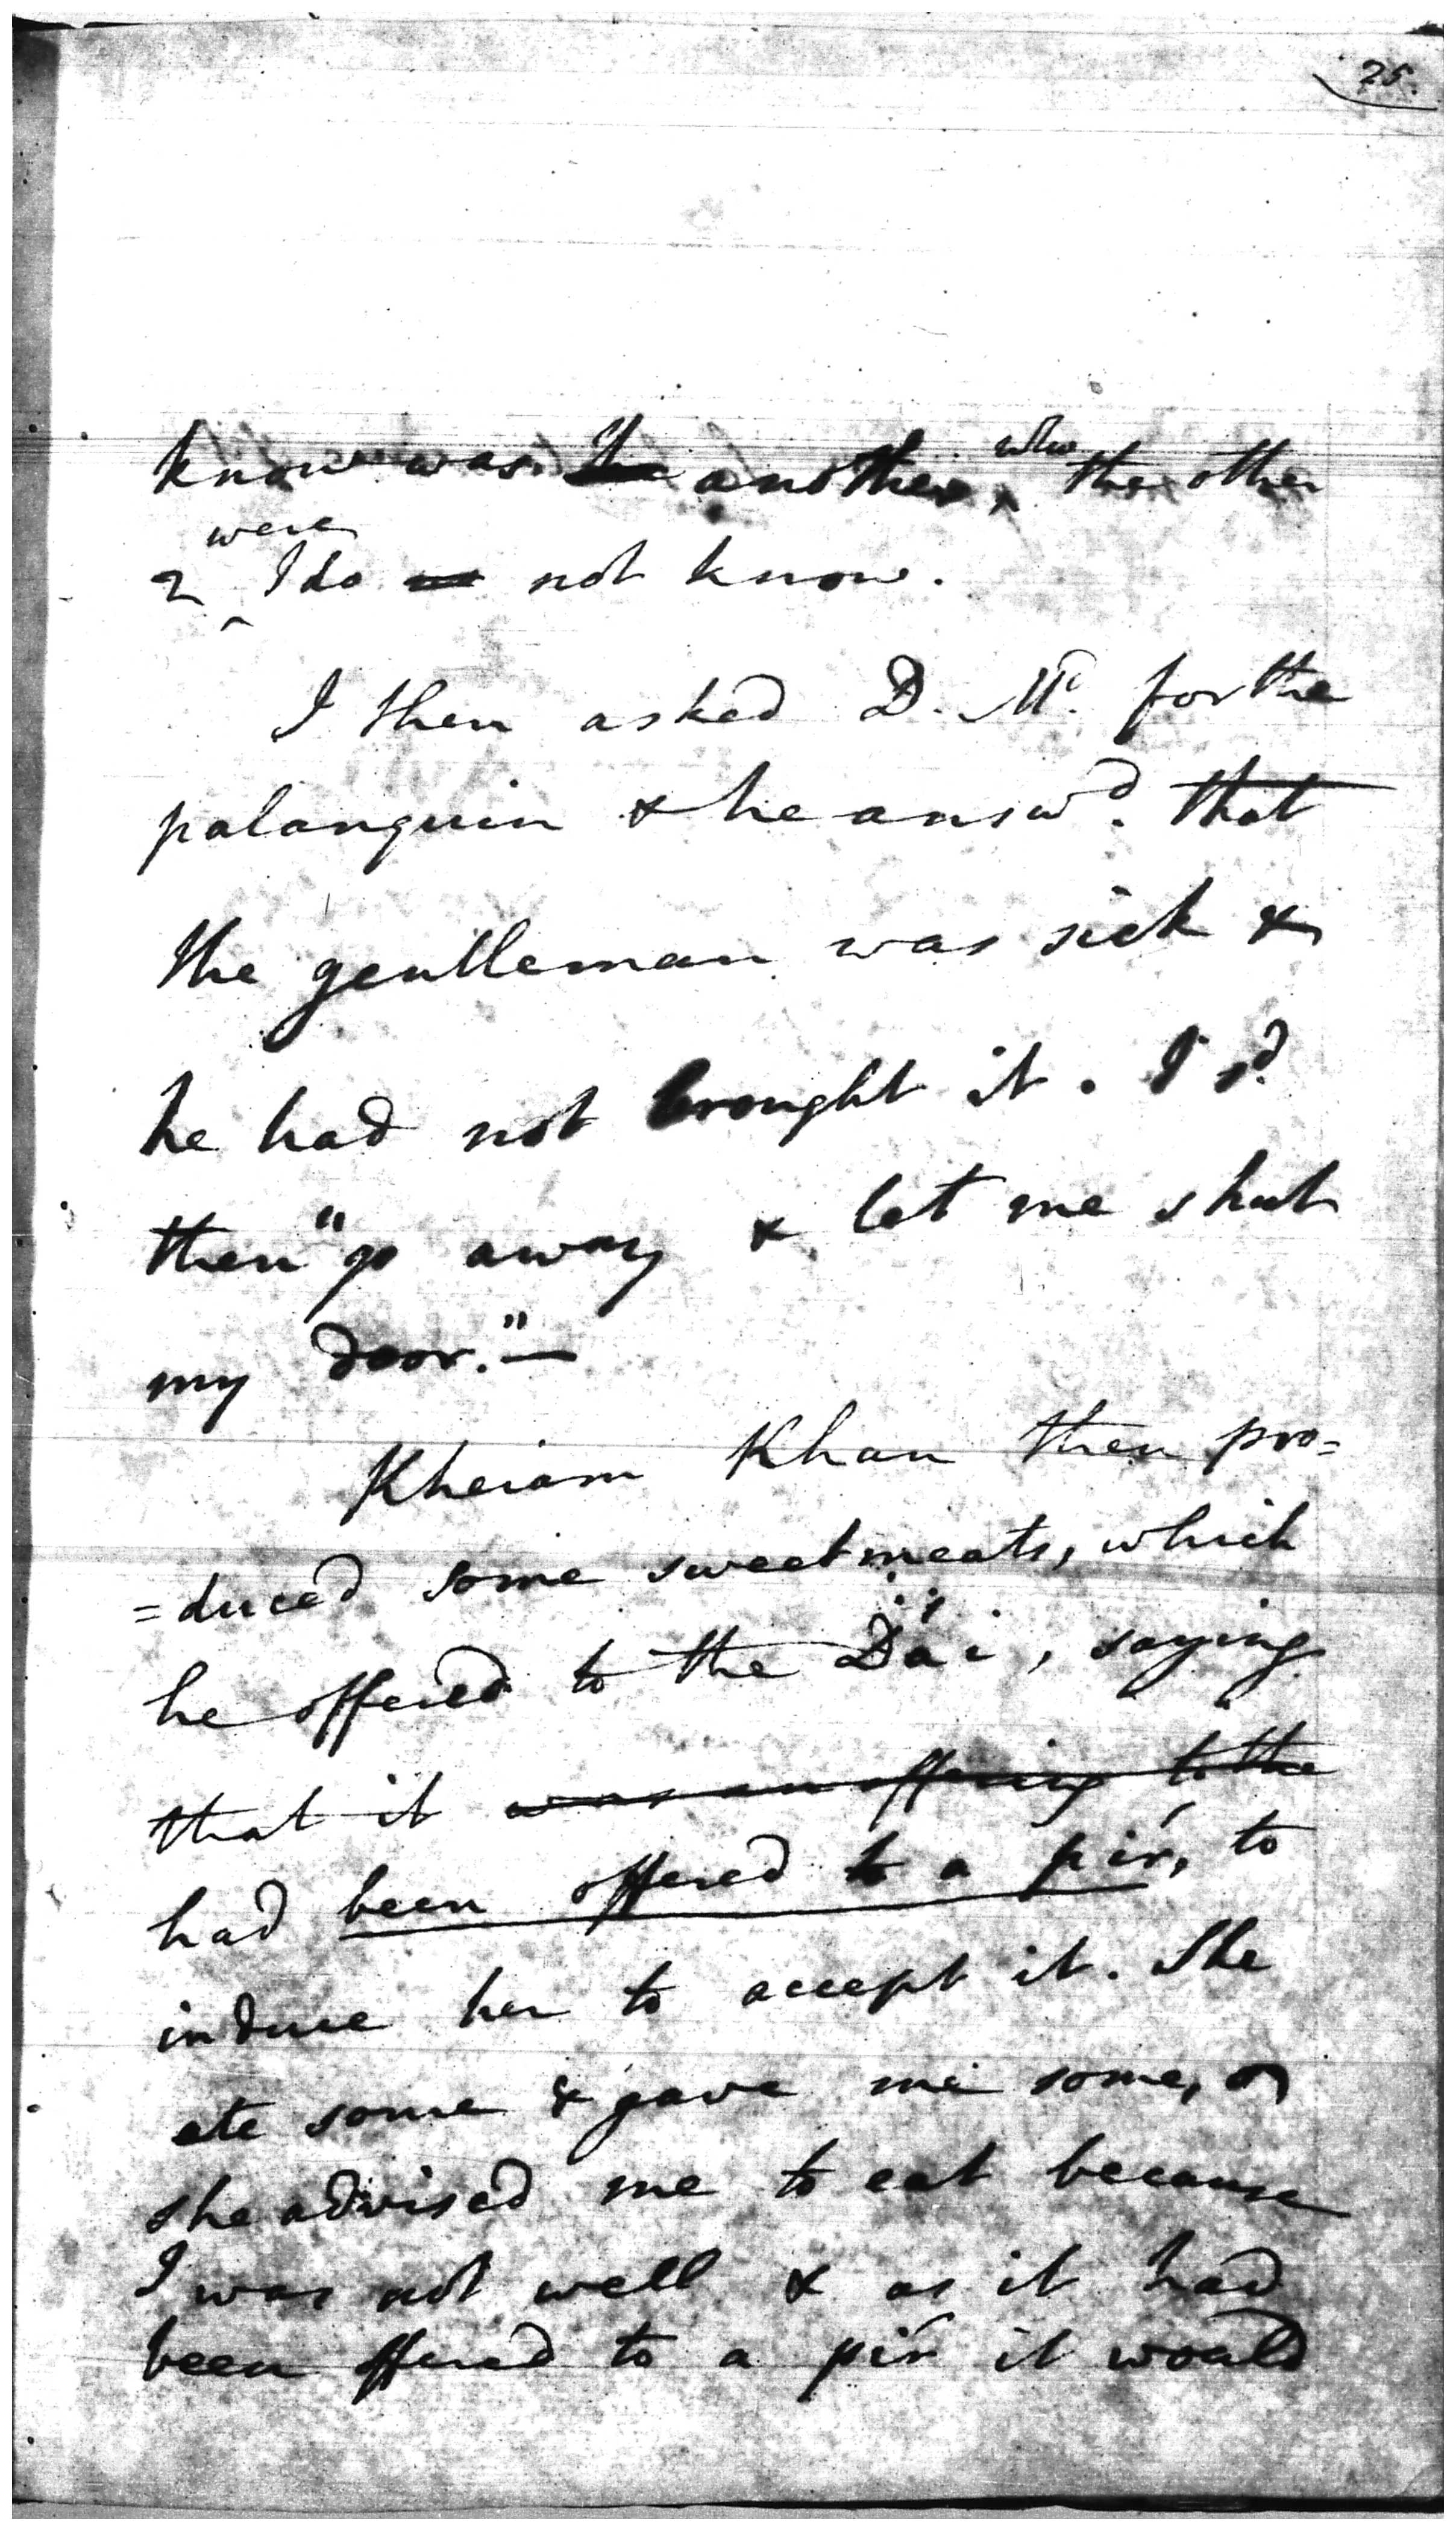 25.
know was another, who the other
2 were I do not know.
I then asked D. Md. for the
palanquin & he answd. that
the gentleman was sick &
he had not brought it. I sd.
then "go away & let me shut
my door."—
Kheiam Khan then pro=
=duced some sweetmeats, which
he offered to the Dái, saying
that it was an offering to the
had been offered to a pír, to
induce her to accept it. She
ate some & gave me some, &
she advised me to eat because
I was not well & as it had
been offered to a pír it would